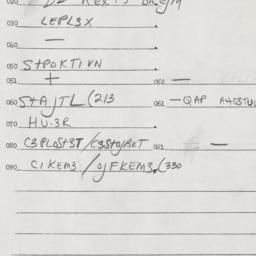 030 LEPL3X
040 —
050 StPOKTIVN
051 + 052 —
060 StAJTL(213 061 —QAP
070 HU·3R
080 C3PLOSt3T/C3StOJBET 081 —
090 CIKEM3/OJFKEM3(330